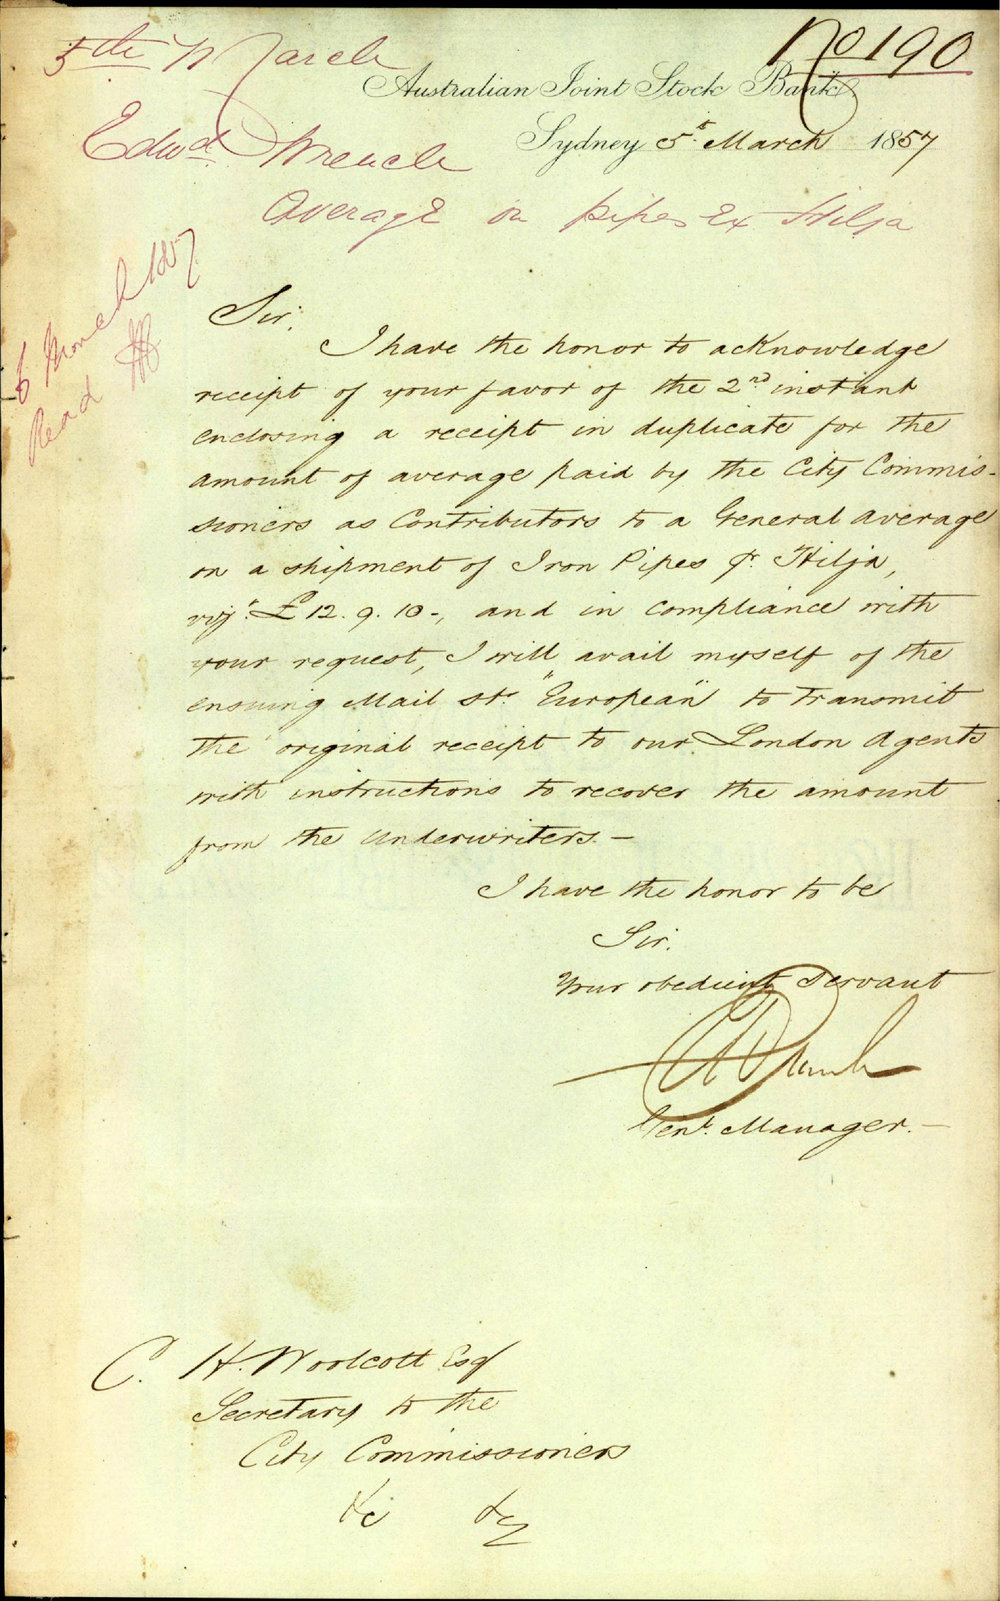 No 190
5th March
Australian Joint Stock Bank
Sydney 5th March 1857
Edwd Wrench
Average on pipes Ex Hilja
6 March 1857
Read
Sir,
I have the honor to acknowledge
receipt of your favor of the 2nd instant
enclosing a receipt in duplicate for the
amount of average paid by the City Commis-
sioners as Contributors to a General Average
on a shipment of Iron Pipes pr Hilja,
vizt £12.9.10-, and in compliance with
your request, I will avail myself of the
ensuing Mail str "European" to transmit
the original receipt to our London Agents
with instructions to recover the amount
from the Underwriters.-
I have the honor to be
Sir.
Your obedient Servant
Genl. Manager.-
C. H. Woolcott Esqr
Secretary to the
City Commissioners
&c &c